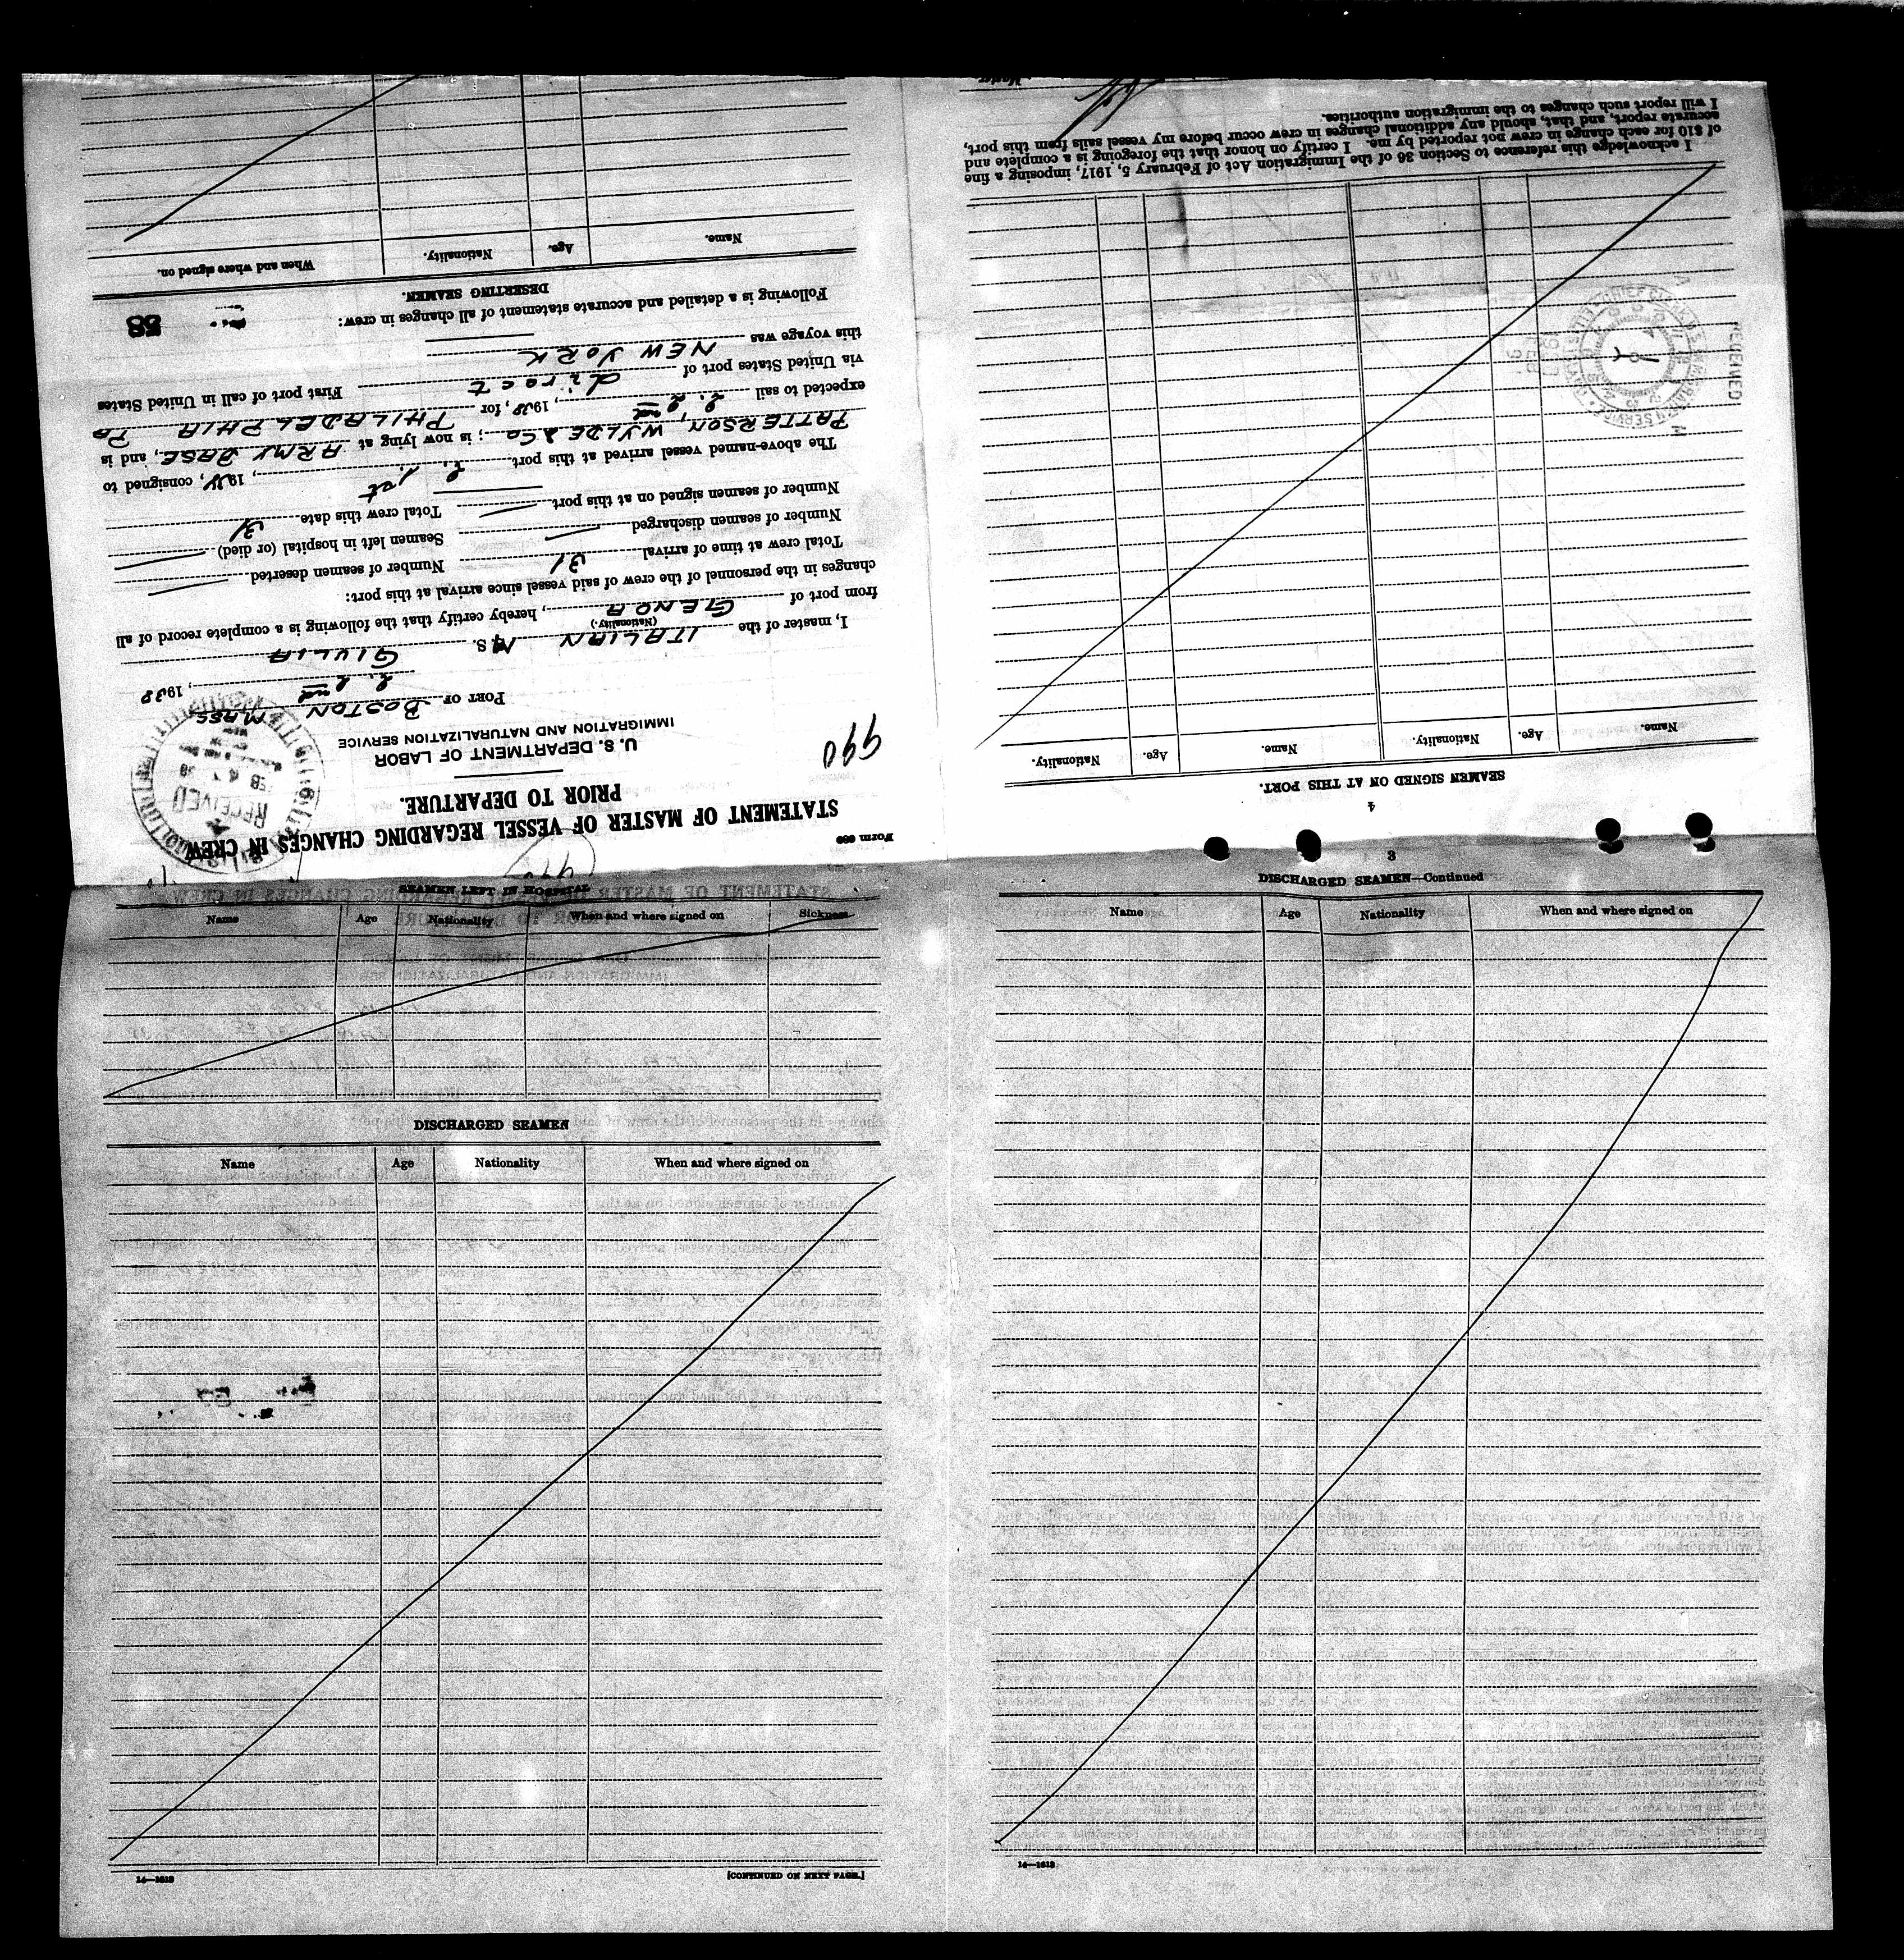 Form 689
STATEMENT OF MASTER OF VESSEL REGARDING CHANGES IN CREW
PRIOR TO DEPARTURE.
990
U. S. DEPARTMENT OF LABOR
IMMIGRATION AND NATURALIZATION SERVICE
RECEIVED
PORT OF BOSTON MASS
2. 2nd, 1938
I, master of the ITALIAN M.S. GIULIA
(Nationality.)
from port of GENOA, hereby certify that the following is a complete record of all
changes in the personnel of the crew of said vessel since arrival at this port:
Total crew at time of arrival 31 Number of seamen deserted
Number of seamen discharged Seamen left in hospital (or died)
Number of seamen signed on at this port Total crew this date 31
The above-named vessel arrived at this port 2. 1st, 1938, consigned to
PATTERSON, WYLDE & Co; is now lying at ARMY BASE, and is
expected to sail 2. 2nd, 1938, for PHILADELPHIA PA
via United States port of direct First port of call in United States
this voyage was NEW YORK
Following is a detailed and accurate statement of all changes in crew:
38
DESERTING SEAMEN.
Name. Age. Nationality. When and where signed on.
4
SEAMEN SIGNED ON AT THIS PORT.
Name. Age. Nationality. Name. Age. Nationality.
RECEIVED
I acknowledge this reference to Section 36 of the Immigration Act of February 5, 1917, imposing a fine
of $10 for each change in crew not reported by me. I certify on honor that the foregoing is a complete and
accurate report, and that, should any additional changes in crew occur before my vessel sails from this port,
I will report such changes to the immigration authorities.
Master.
SEAMEN LEFT IN HOSPITAL
Name Age Nationality When and where signed on Sickness
DISCHARGED SEAMEN
Name Age Nationality When and where signed on
14—1613
[CONTINUED ON NEXT PAGE.]
3
DISCHARGED SEAMEN—Continued
Name Age Nationality When and where signed on
14—1613